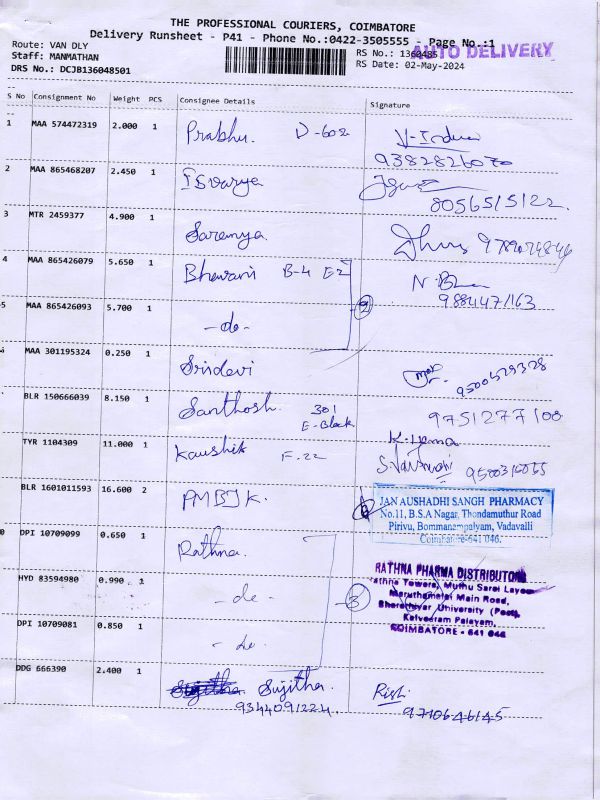 THE PROFESSIONAL COURIERS, COIMBATORE
Delivery Runsheet - P41 - Phone No.:0422-3505555 - Page No.:1
AUTO DELIVERY
Route: VAN DLY
Staff: MANMATHAN
DRS No.: DCJB136048501
RS No.: 1360485
RS Date: 02-May-2024
S No Consignment No Weight PCS Consignee Details Signature
1 MAA 574472319 2.000 1 Prabhu. D-602
9382826070
2 MAA 865468207 2.450 1 Isvarya
8056515122.
3 MTR 2459377 4.900 1 Saranya
4 MAA 865426079 5.650 1 Bhavani B-4 E2
9884471163
5 MAA 865426093 5.700 1 -do- 2
MAA 301195324 0.250 1 Sridevi
9500529328
BLR 150666039 8.150 1 Santhosh. 301
E-Block
9751277100
TYR 1104309 11.000 1 Kaushik F-22
K. Hema
BLR 1601011593 16.600 2 PMBJK.
JAN AUSHADHI SANGH PHARMACY
No.11, B.S.A Nagar, Thondamuthur Road
Pirivu, Bommanampalyam, Vadavalli
Coimbatore-641 046.
0 DPI 10709099 0.650 1 Rathna.
RATHNA PHARMA DISTRIBUTORS
Rathna Towers, Muthu Sarei Layout
Maruthamalai Main Road,
Bharathiyar University (Post),
Kalveeram Palayam,
COIMBATORE - 641 046
HYD 83594980 0.990 1 -do- 3
DPI 10709081 0.850 1 -do-
DDG 666390 2.400 1 Sujitha.
9344091224.
9710646145